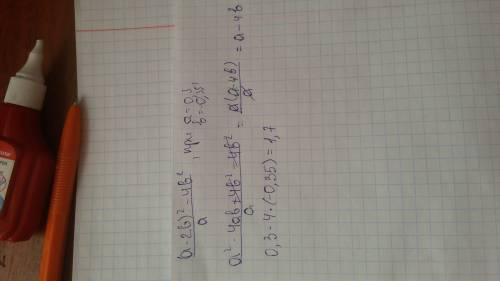 (a-2b)² - 4b² / a , при a = 0,3, b = -0,35,
a² - 4ab + 4b² - 4b² / a = a(a-4b) / a = a - 4b
0,3 - 4 · (-0,35) = 1,7